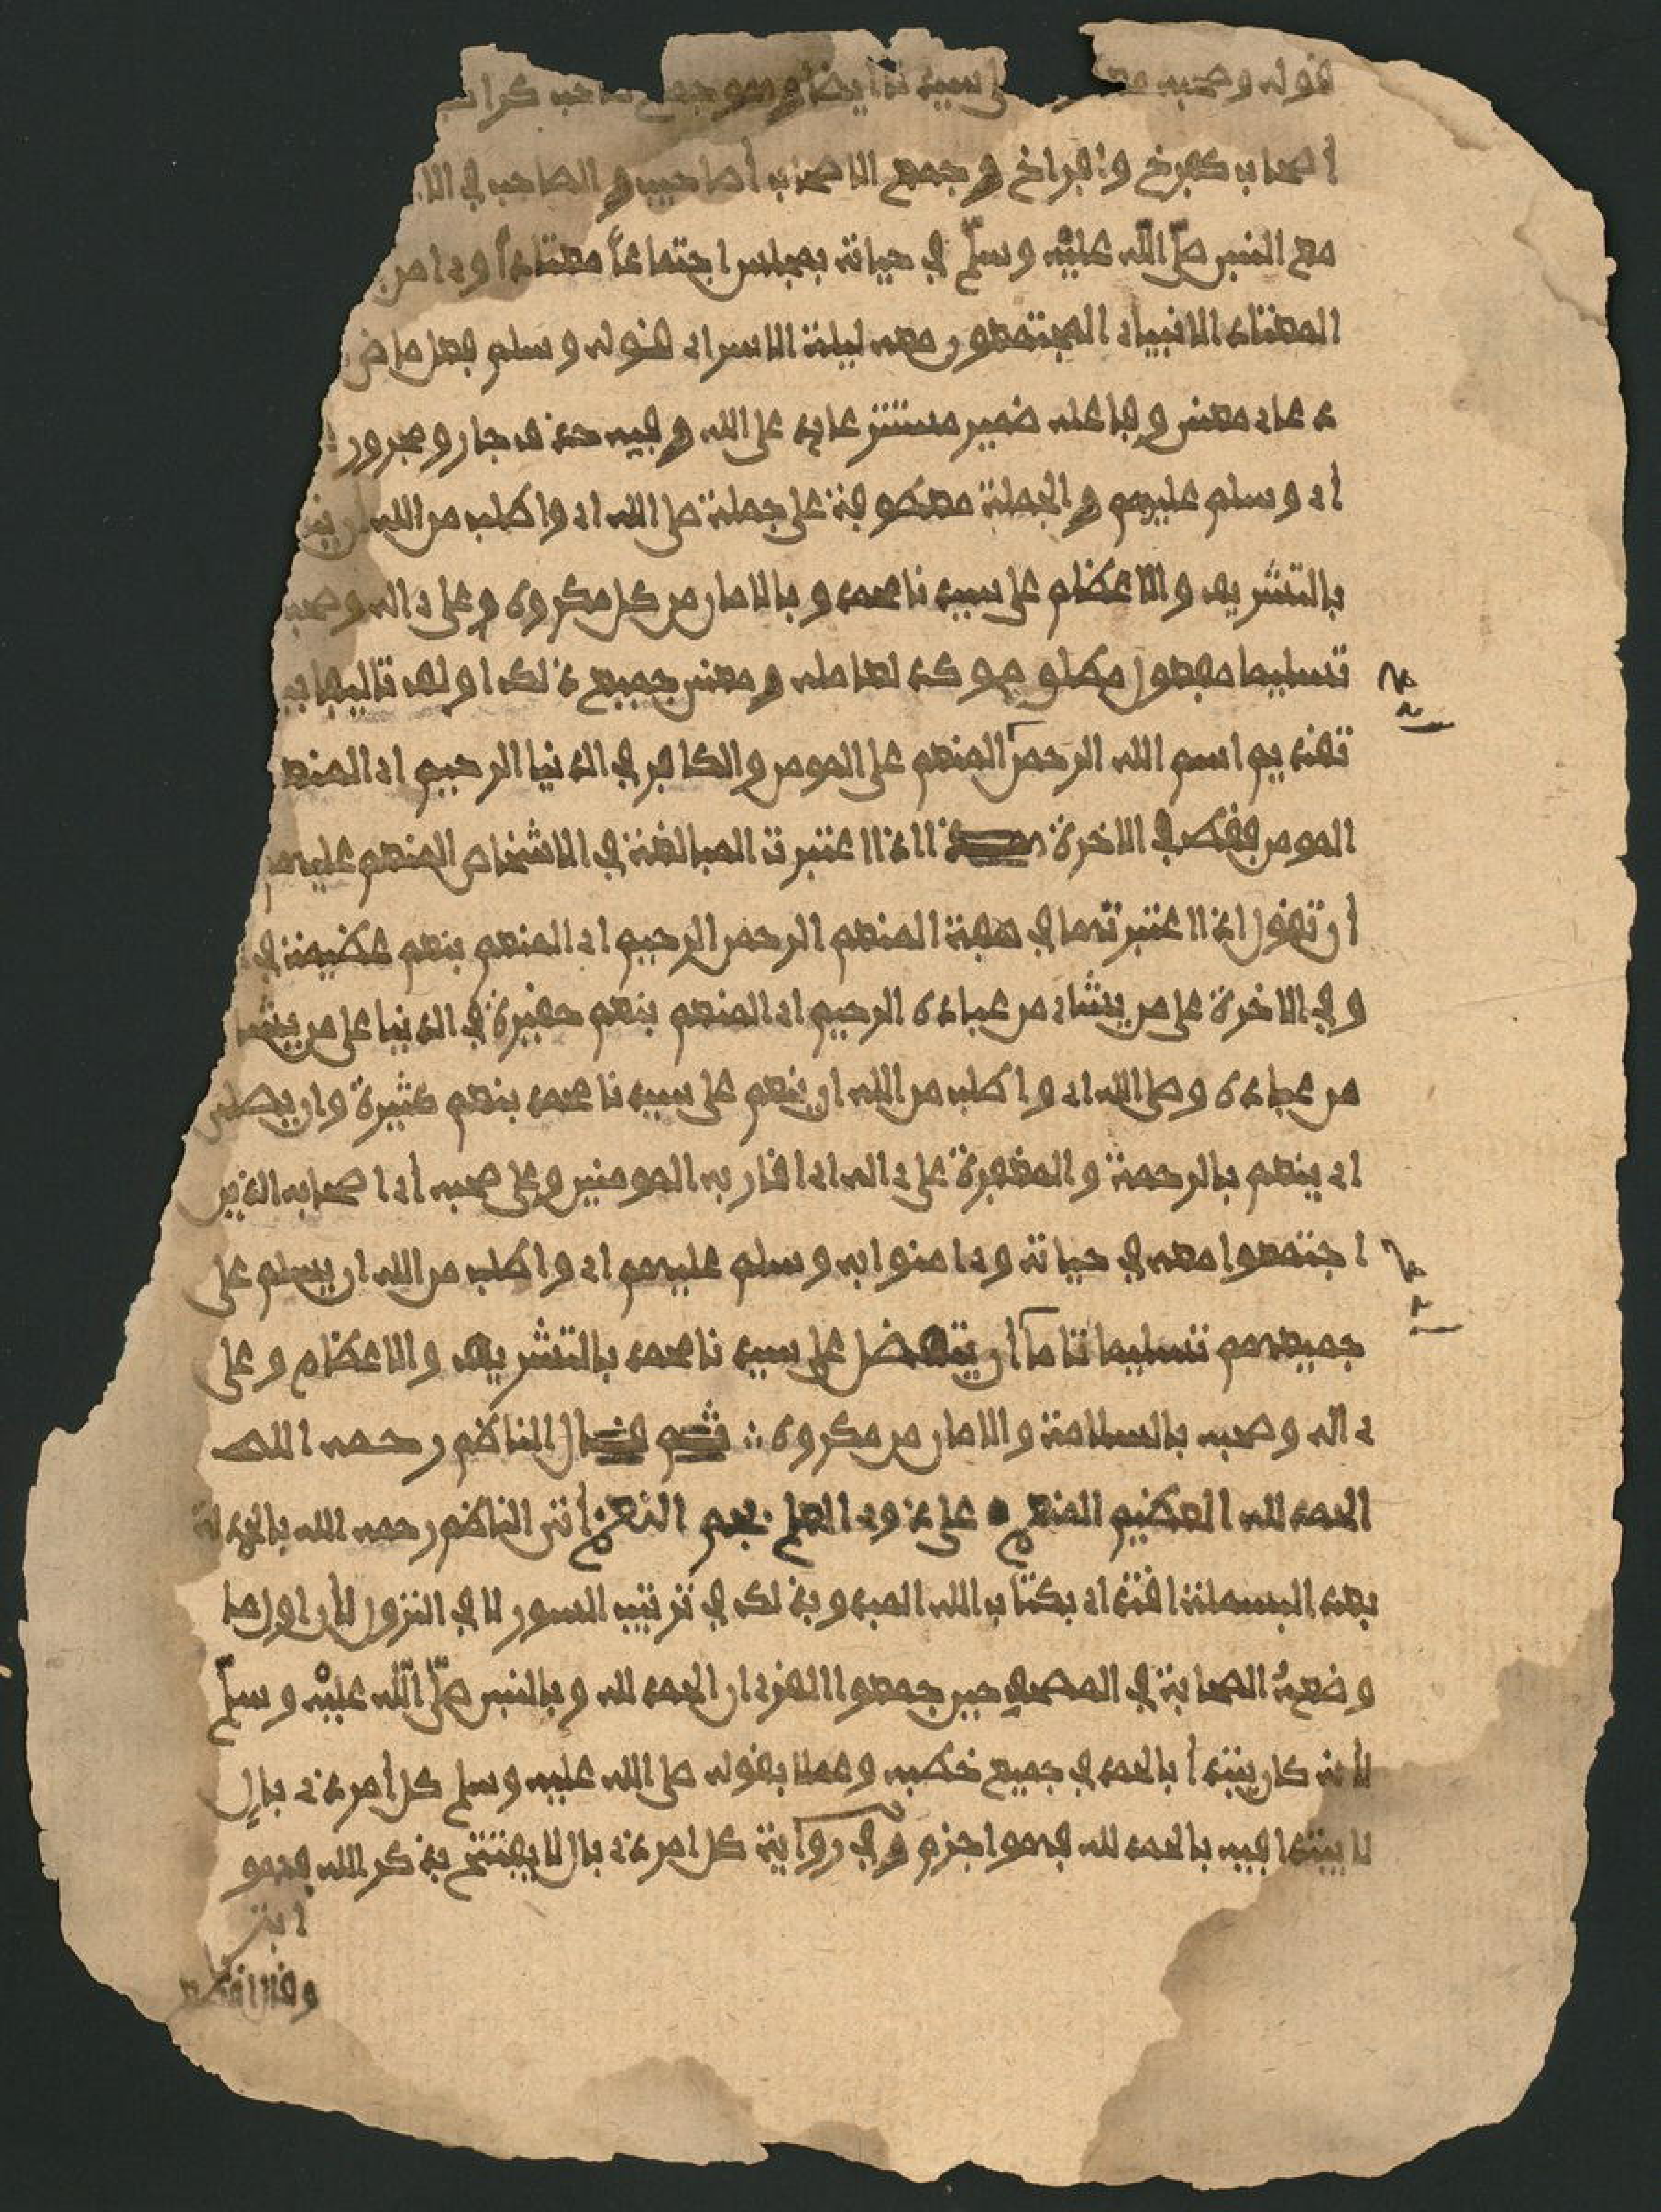 قوله وصحبه سيدنا أيضا وهو جمع صاحب كراكب
أصحاب كفرخ وافراخ وجمع الاصحاب أصاحيب والصاحب في
مع النبي صلّى اللّه عليْه وسلّم في حياته بمجلس اجتماعاً معتاداً وءامن
المعتاد الانبياء المجتمعون معه ليلة الاسراء قوله وسلم فعل ماض
دعاء معنى وفاعله ضمير مستتر عايد على الله وفيه حذف جار ومجرور
أي وسلم عليهم والجملة معطوفة على جملة صلى الله اي واطلب من الله ان
بالتشريف والاعظام على سيدنا محمد وبالامان من كل مكروه وعلى ءاله وصحبه
تسليما مفعول مطلو موكد لعامله ومعنى جميع ذلك اولف تاليفا
تقديم اسم الله الرحمن المنعم على المومن والكافر في الدنيا الرحيم اي المنعم
المومن فقط في الاخرة اذا اعتبرت المبالغة في الاشخاص المنعم عليهم
أن تقول اذا اعتبرتها في صفة المنعم الرحمن الرحيم اي المنعم بنعم عظيمة في
وفي الاخرة على من يشاء من عباده الرحيم اي المنعم بنعم حقيرة في الدنيا على من يشاء
من عباده وصلى الله اي واطلب من الله ان ينعم على سيدنا محمد بنعم كثيرة وان يصلى
اي ينعم بالرحمة والمغفرة على ءاله اي اقاربه المومنين وعلى صحبه أي اصحابه الذين
اجتمعوا معه في حياته وءامنوا به وسلم عليهم اي واطلب من الله ان يسلم على
جميعهم تسليما تاما أن يتفضل على سيدنا محمد بالتشريف والاعظام وعلى
ءاله وصحبه بالسلامة والامان من مكروه ∴ ثم قال الناظم رحمه الله
الحمد لله العظيم المنعم • على ذوي العلم بجم النعم أتى الناظم رحمه الله بالحمدلة
بعد البسملة اقتداء بكتاب الله المبدو بذلك في ترتيب السور لا في النزول لأن اول ما
وضعهُ الصحابة في المصحف حين جمعوا القرءان الحمد لله وبالنبي صلّى اللّه عليْه وسلّم
لأنه كان يبتدأ بالحمد في جميع خطبه وعملا بقوله صلى الله عليه وسلم كل أمر ذي بالٍ
لا يبتدا فيه بالحمد لله فهو اجزم وفي رواية كل امر ذي بال لا يفتتح بذكر الله فهو
ابتر